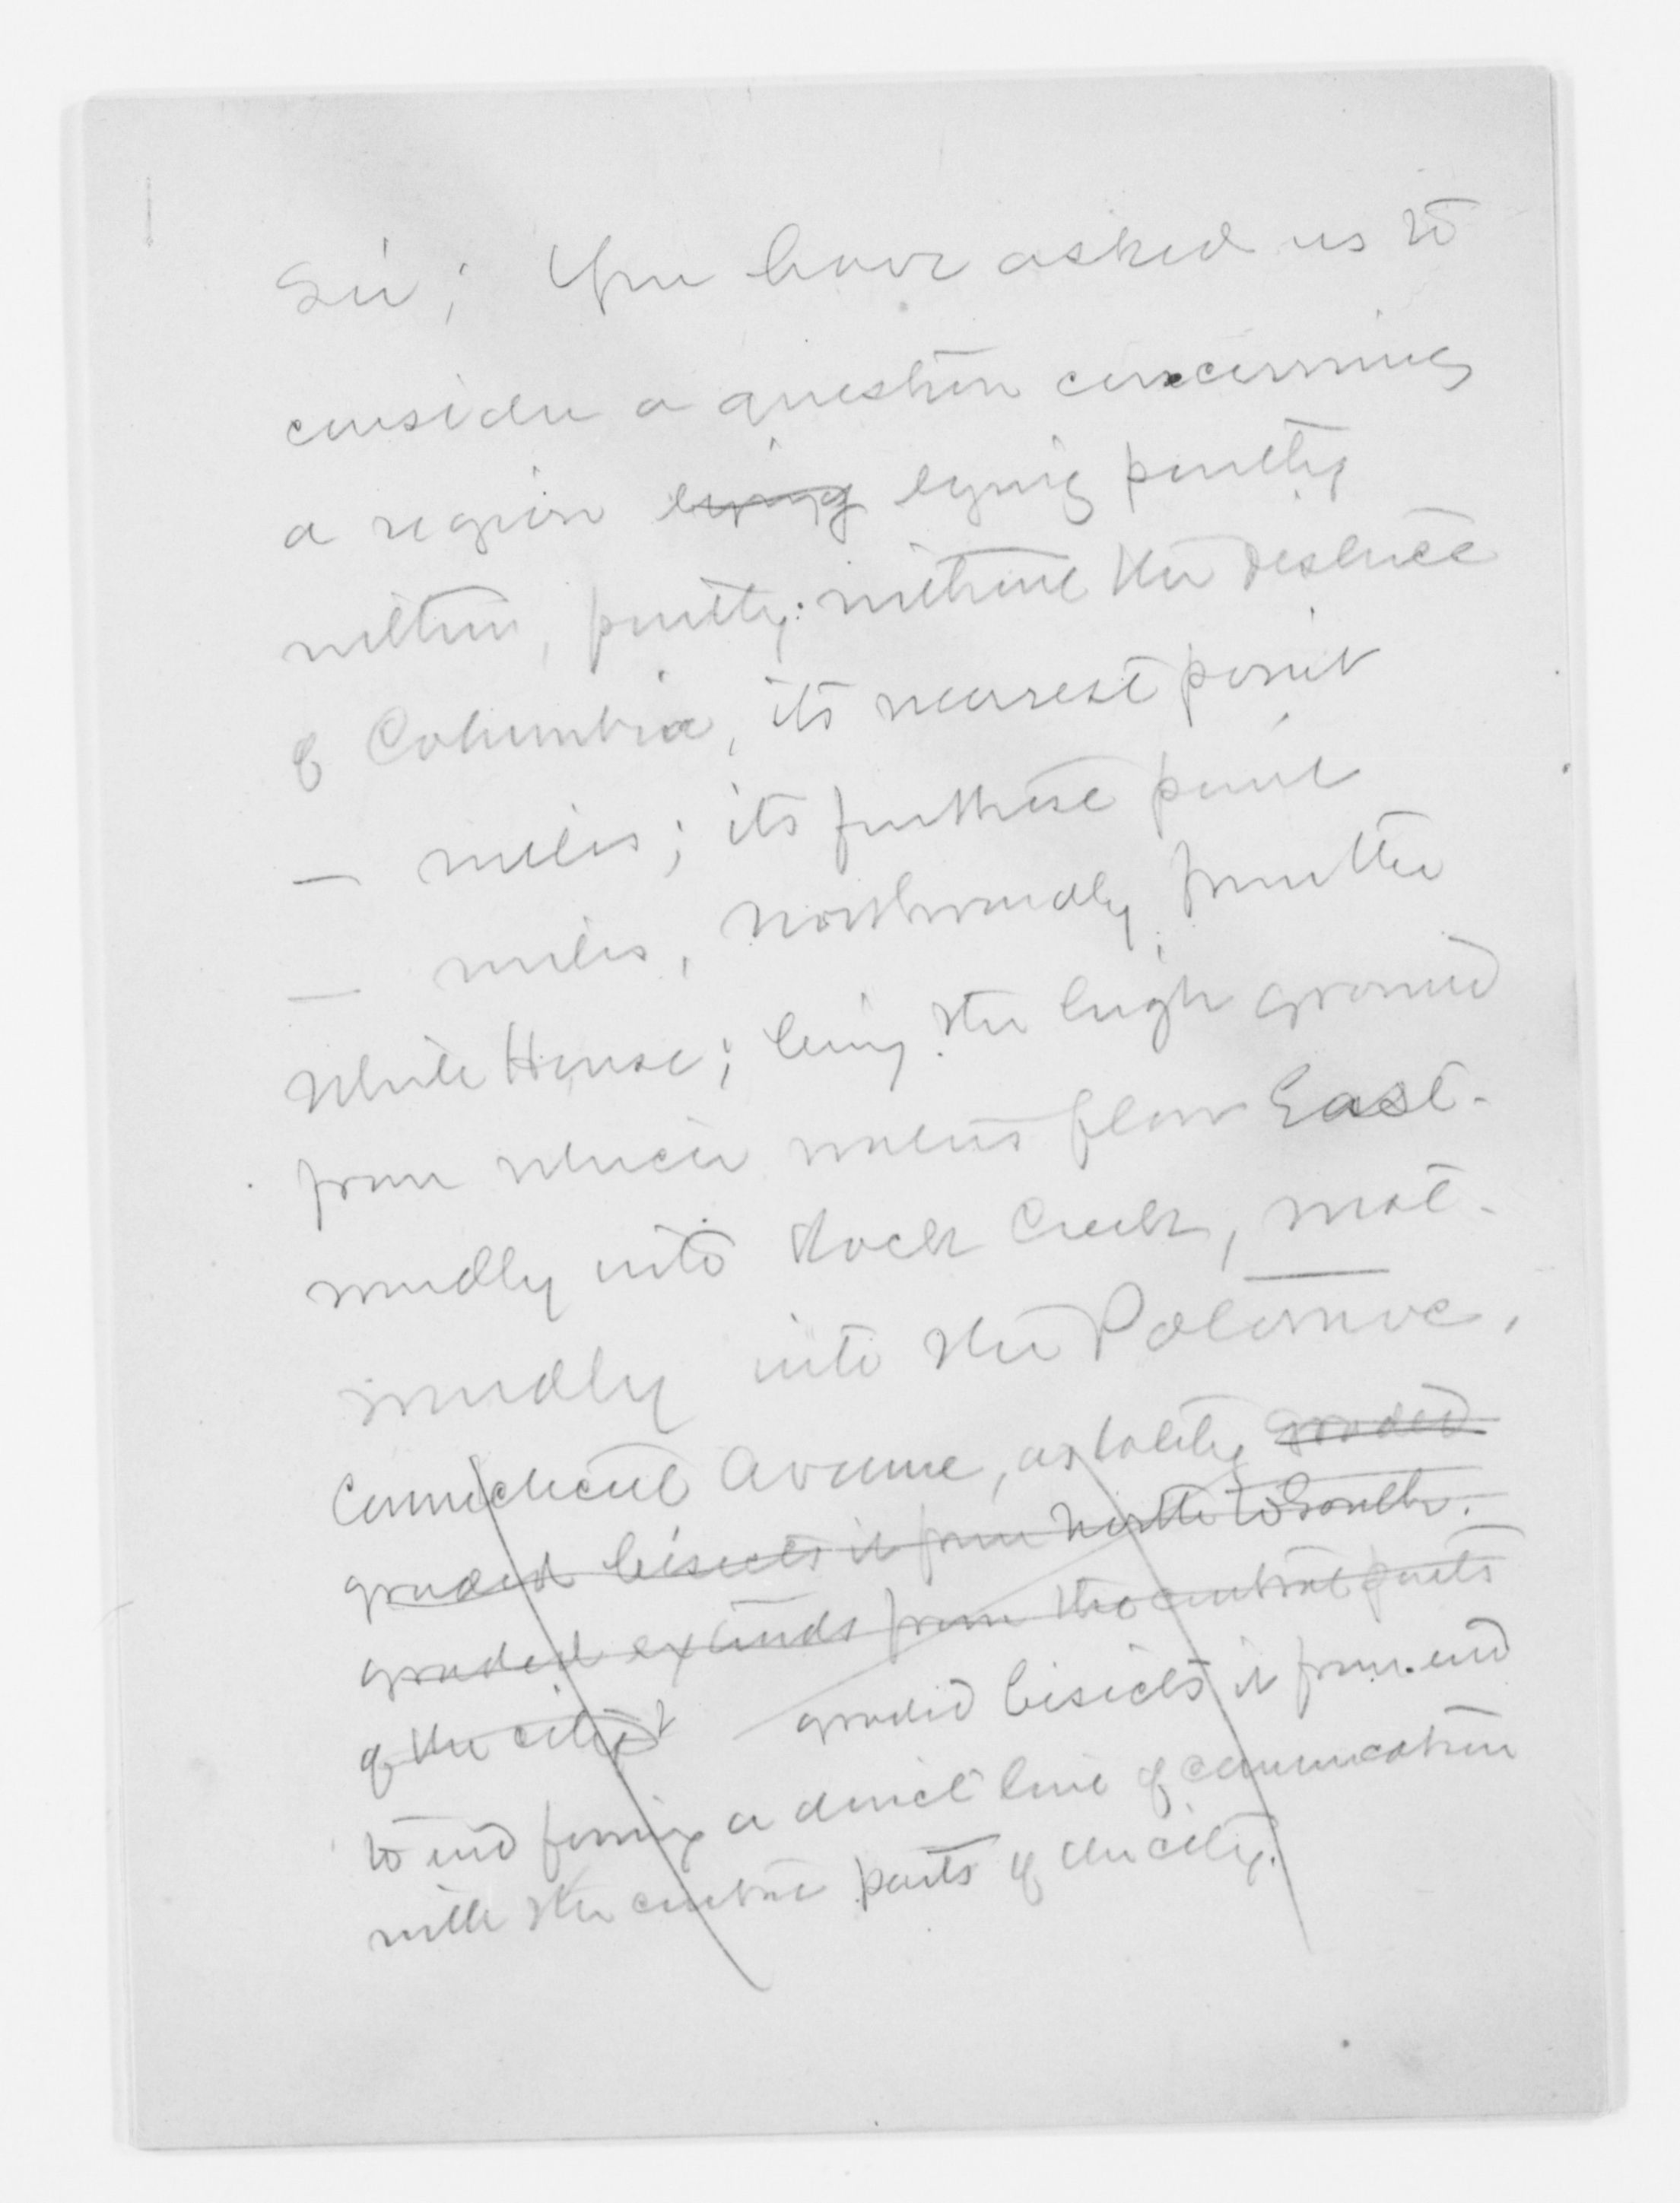 Sir; You have asked us to
consider a question concerning
a region lying lying partly
within, partly without the District
of Columbia, its nearest point
— miles; its furthest point
— miles, northwardly from the
White House; being the high ground
from which waters flow East-
wardly into Rock Creek, west-
wardly into the Potomac.
Connecticut Avenue, as lately graded
graded bisects it from North to South.
graded extends from the central parts
of the city graded bisects it from end
to end forming a direct line of communication
with the central parts of the city.